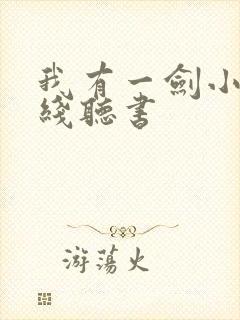 我有一劍小
綫聽書
游蕩火